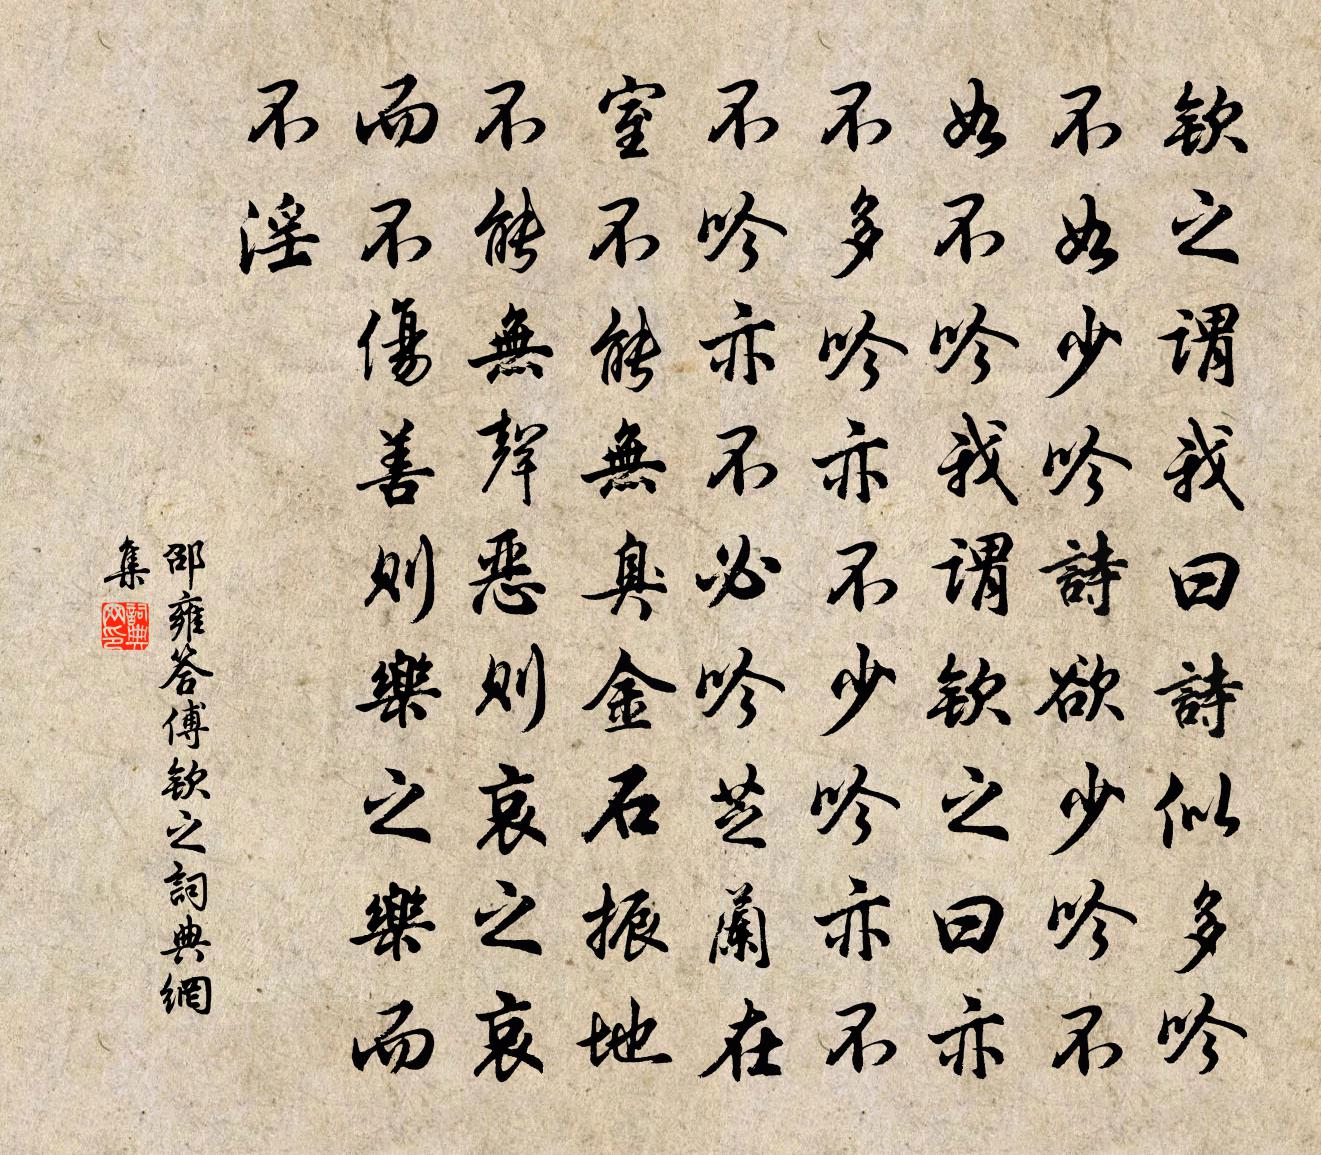 欽之謂我曰詩似多吟
不如少吟詩欲少吟不
如不吟我謂欽之曰亦
不多吟亦不少吟亦不
不吟亦不必吟芝蘭在
室不能無臭金石振地
不能無聲惡則哀之哀
而不傷善則樂之樂而
不淫
邵雍答傅欽之詞典網
集
詞典
网印